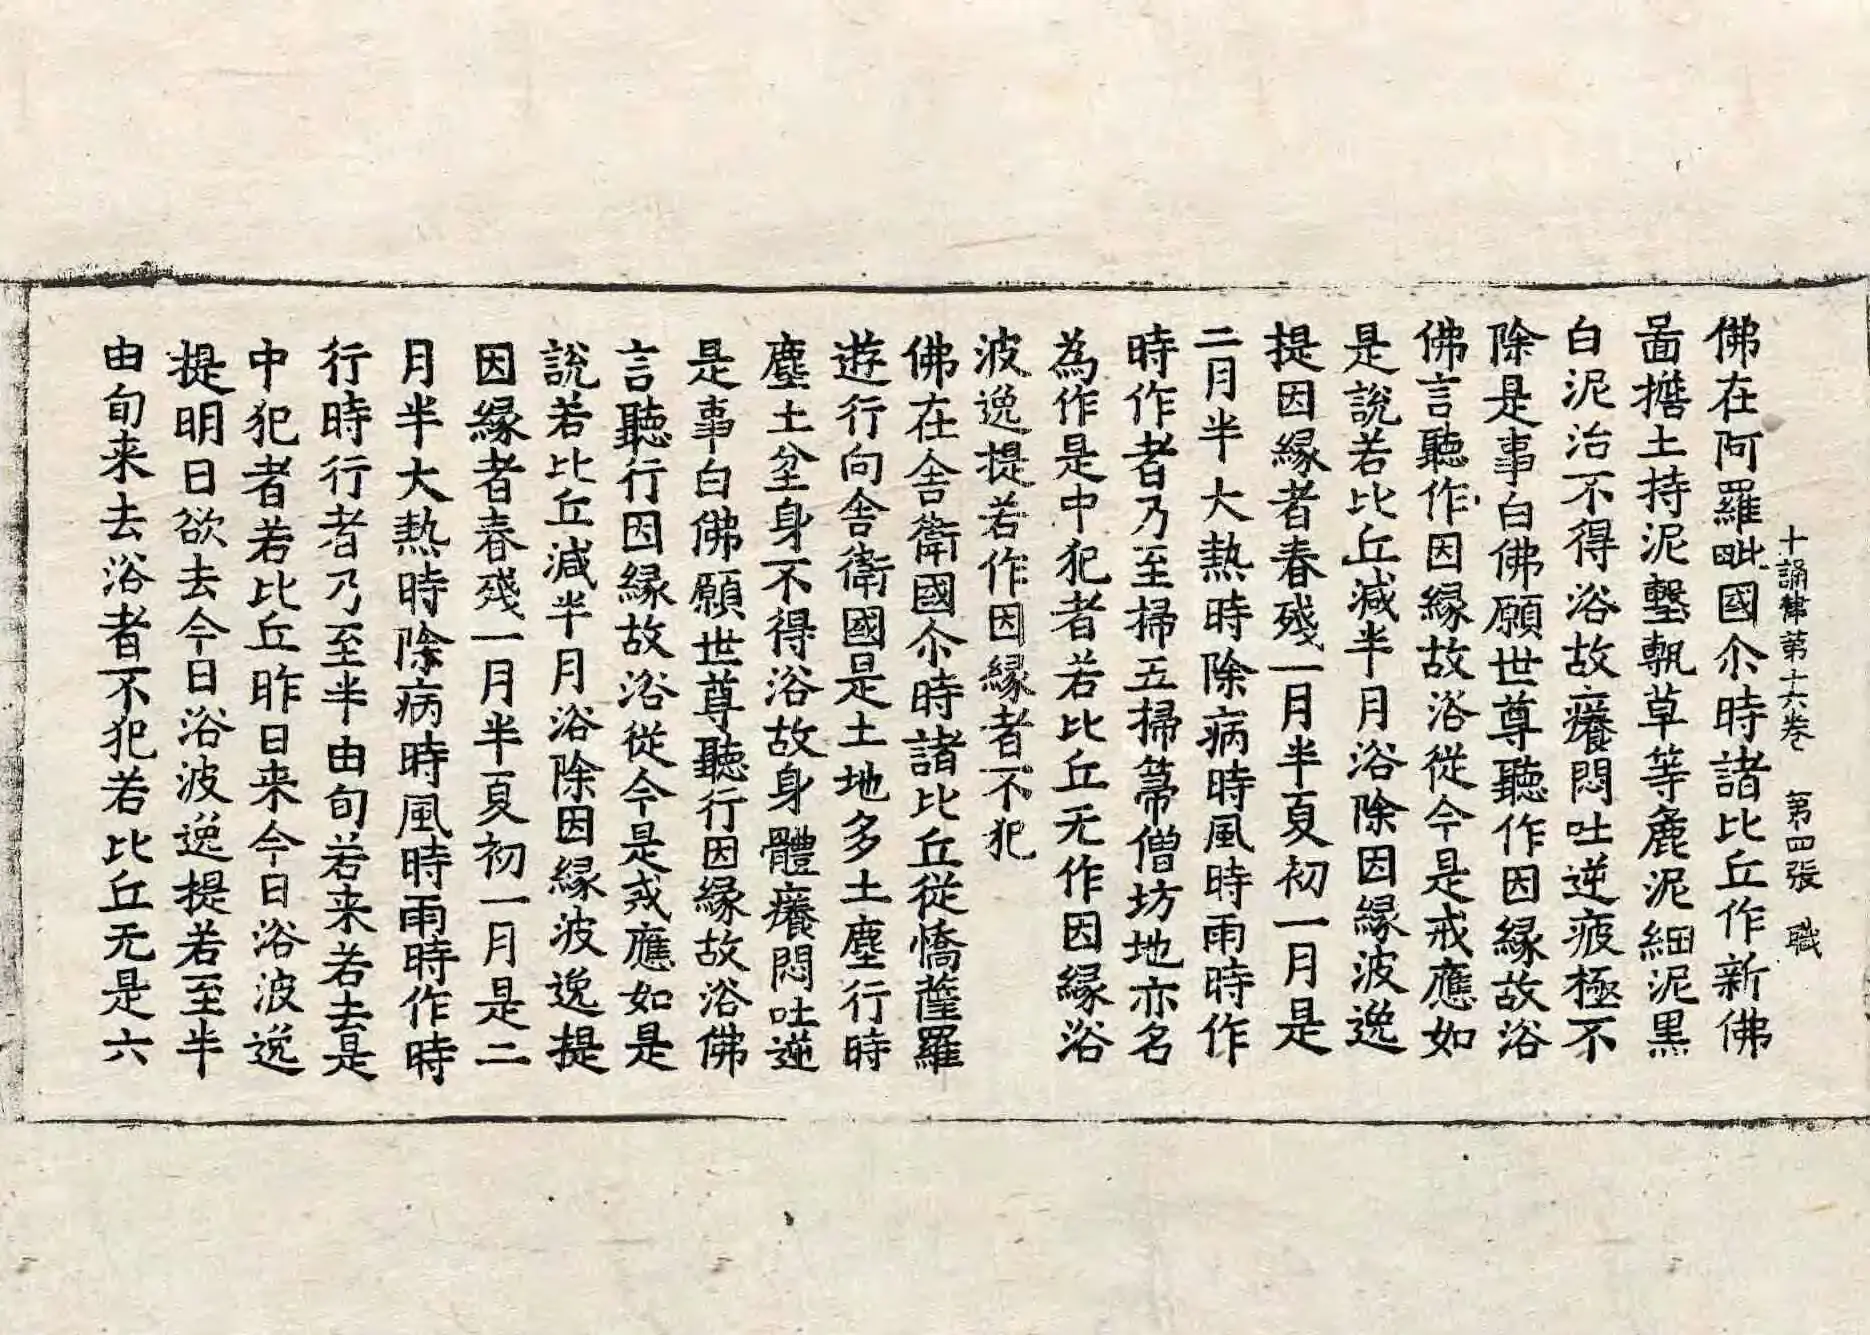 十誦律第十六卷 第四張 職
佛在阿羅毗國尒時諸比丘作新佛
啚擔土持泥墼塹草等麁泥細泥黒
白泥治不得浴故癢悶吐逆疲極不
除是事白佛願世尊聽作因縁故浴
佛言聽作因縁故浴從今是戒應如
是說若比丘減半月浴除因縁波逸
提因縁者春殘一月半夏初一月是
二月半大熱時除病時風時雨時作
時作者乃至掃五掃箒僧坊地亦名
為作是中犯者若比丘无作因縁浴
波逸提若作因縁者不犯
佛在舍衛國尒時諸比丘從憍薩羅
遊行向舍衛國是土地多土塵行時
塵土坌身不得浴故身體癢悶吐逆
是事白佛願世尊聽行因縁故浴佛
言聽行因縁故浴從今是戒應如是
說若比丘減半月浴除因縁波逸提
因縁者春殘一月半夏初一月是二
月半大熱時除病時風時雨時作時
行時行者乃至半由旬若来若去是
中犯者若比丘昨日来今日浴波逸
提明日欲去今日浴波逸提若至半
由旬来去浴者不犯若比丘无是六